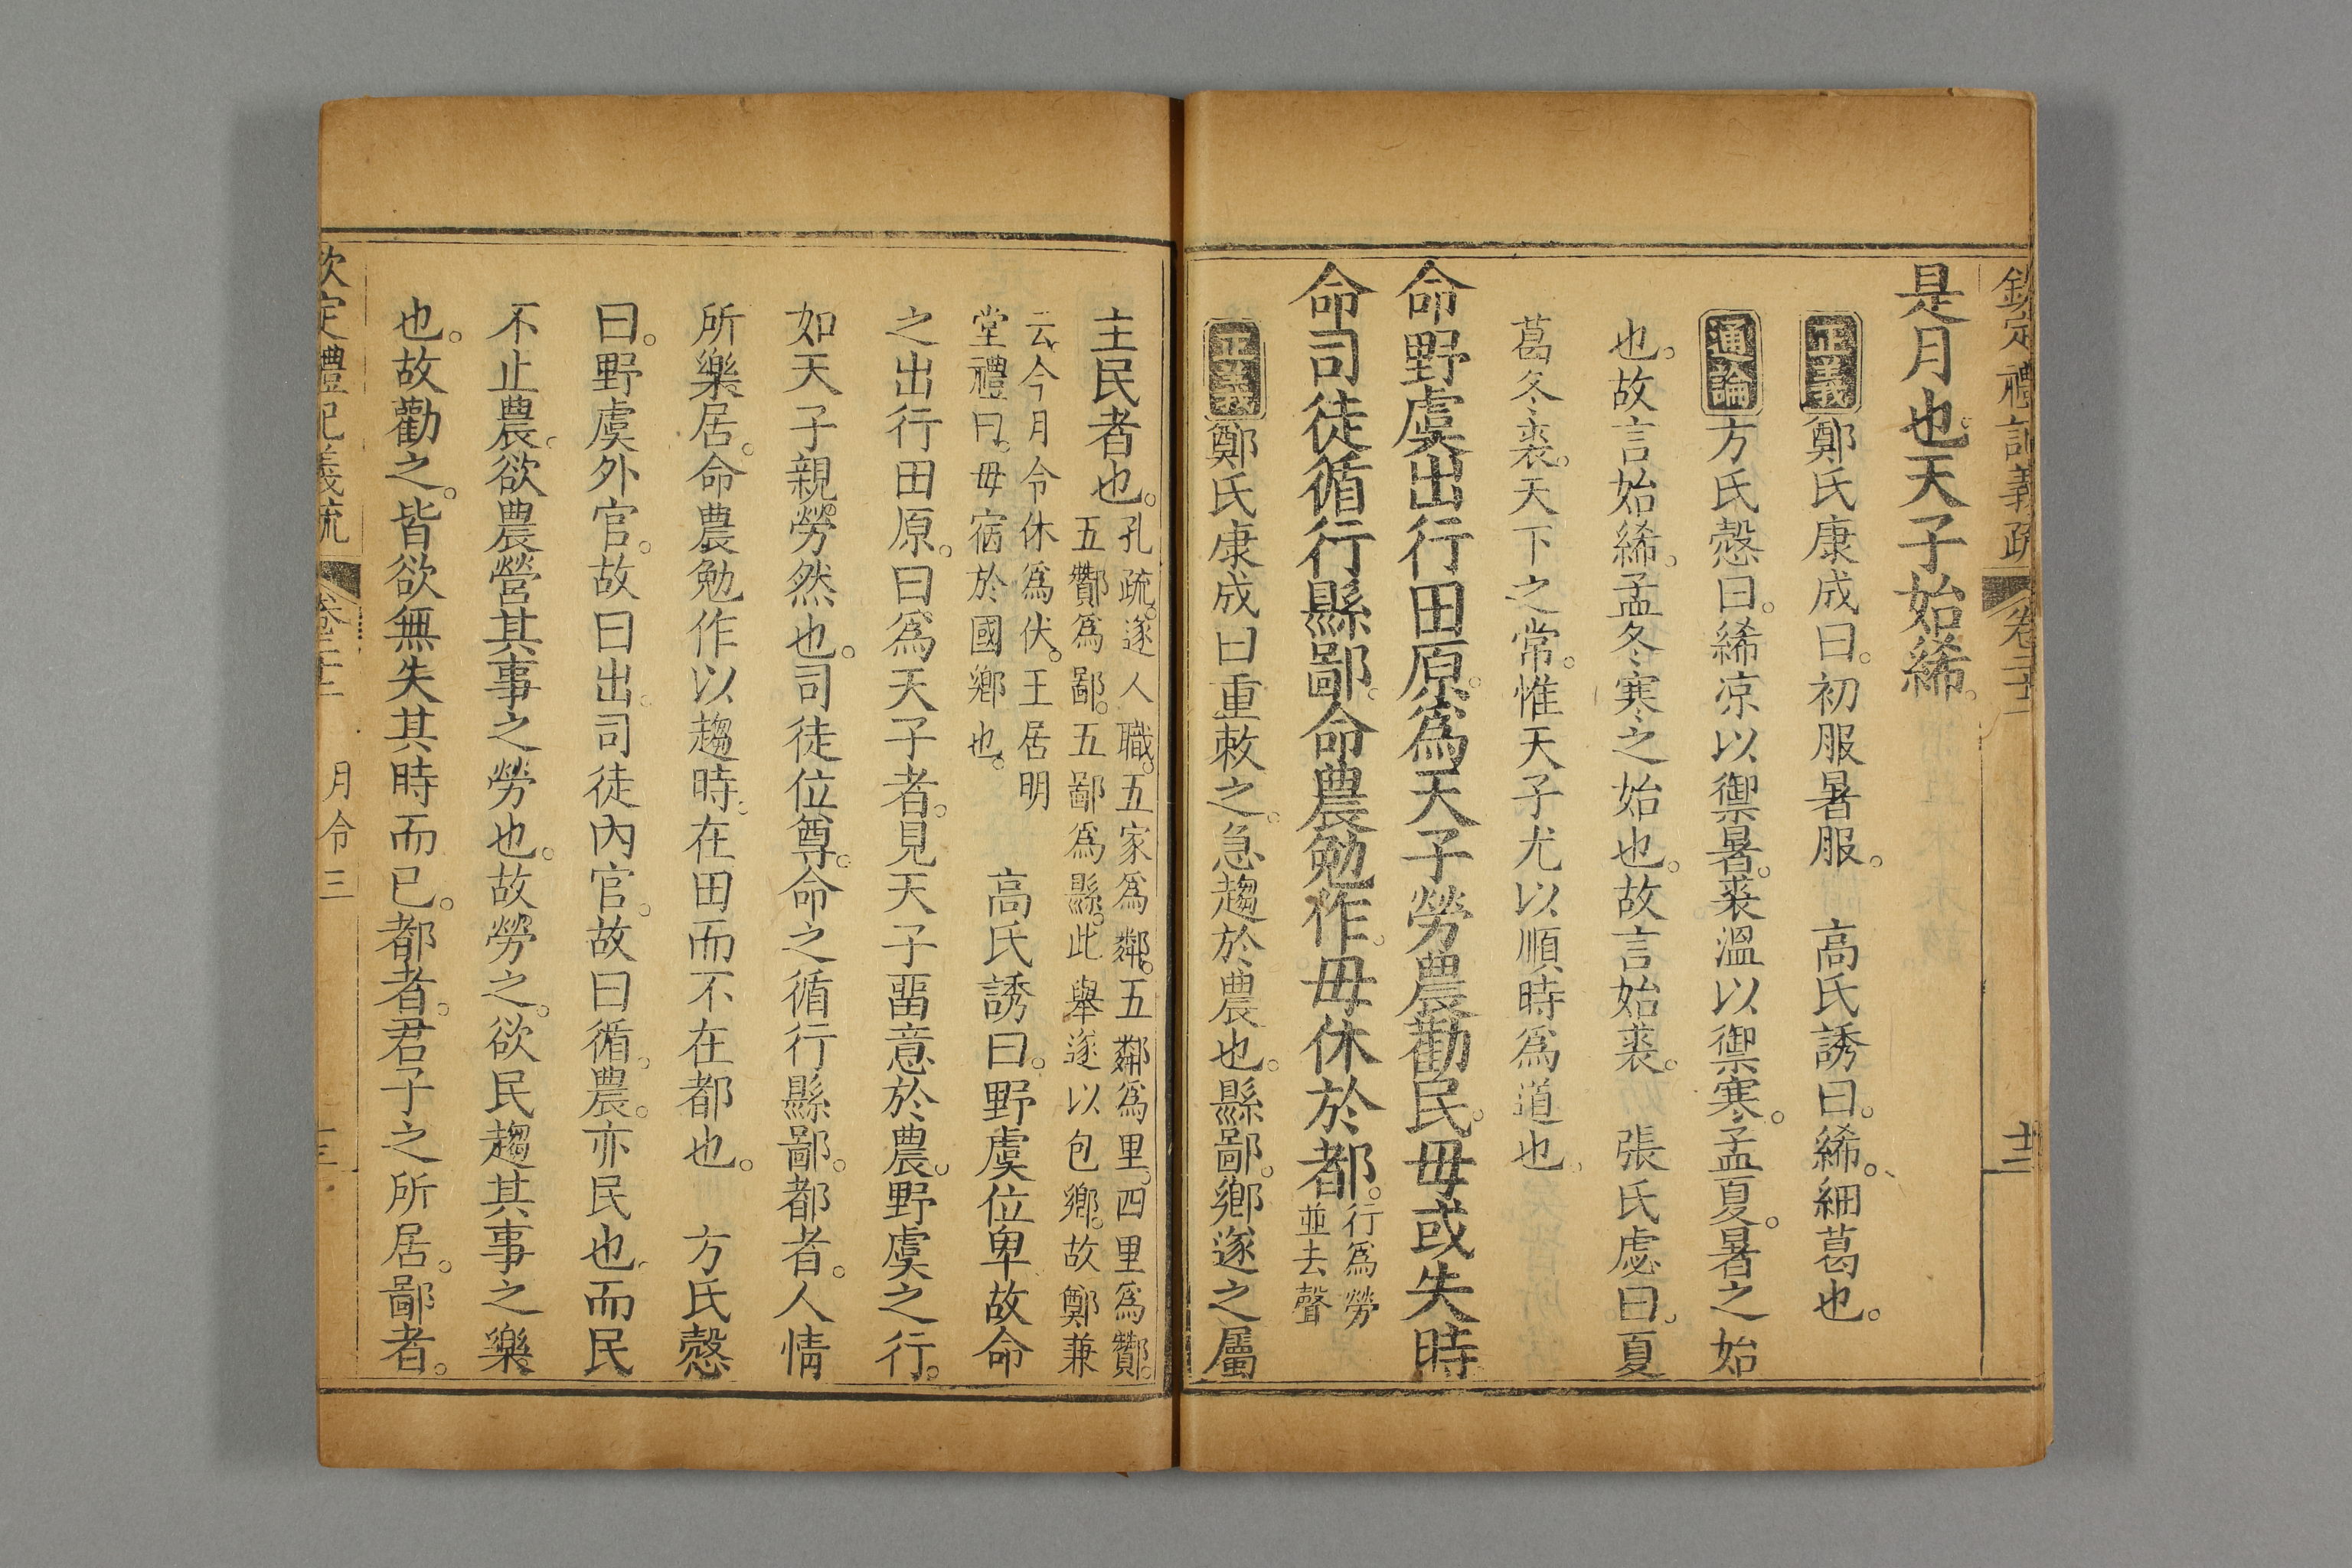 欽定禮記義疏 卷二十二 十二
是月也。天子始絺。
正義 鄭氏康成曰。初服暑服。 高氏誘曰。絺。細葛也。
通論 方氏慤曰。絺凉以禦暑。裘溫以禦寒。孟夏。暑之始
也。故言始絺。孟冬。寒之始也。故言始裘。 張氏虙曰。夏
葛冬裘。天下之常。惟天子尤以順時爲道也。
命野虞出行田原。爲天子勞農勸民。毋或失時
命司徒循行縣鄙。命農勉作。毋休於都。行爲勞
並去聲
正義 鄭氏康成曰重敕之。急趨於農也。縣鄙。鄉遂之屬
主民者也。孔疏。遂人職。五家爲鄰。五鄰爲里。四里爲酇。
五酇爲鄙。五鄙爲縣。此舉遂以包鄉。故鄭兼
云今月令休爲伏。王居明
堂禮曰。毋宿於國鄉也。 高氏誘曰。野虞位卑故命
之出行田原。曰爲天子者。見天子畱意於農。野虞之行。
如天子親勞然也。司徒位尊。命之循行縣鄙。都者。人情
所樂居。命農勉作以趨時。在田而不在都也。 方氏慤
曰。野虞外官。故曰出。司徒內官。故曰循。農。亦民也。而民
不止農。欲農營其事之勞也。故勞之。欲民趨其事之樂
也。故勸之。皆欲無失其時而已。都者。君子之所居。鄙者。
欽定禮記義疏 卷二十二 月令三 十三